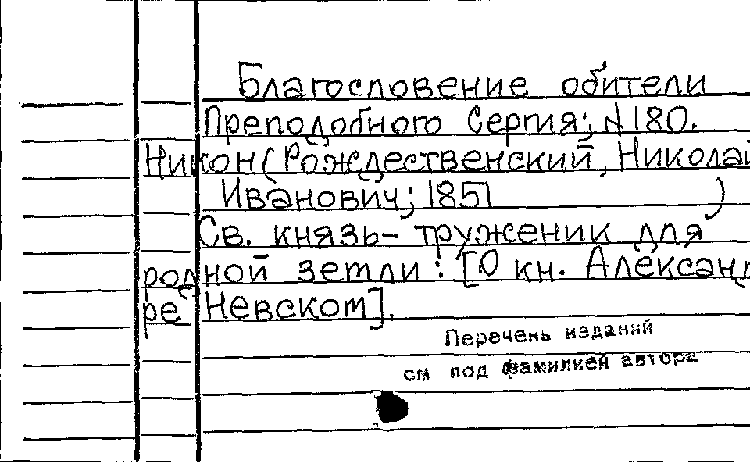 Благословение обители
Преподобного Сергия; №180.
Никон (Рождественский, Николай
Иванович; 1851 )
Св. князь-труженик для
родной земли: [О кн. Александ
ре Невском].
Перечень изданий
см под фамилией автора